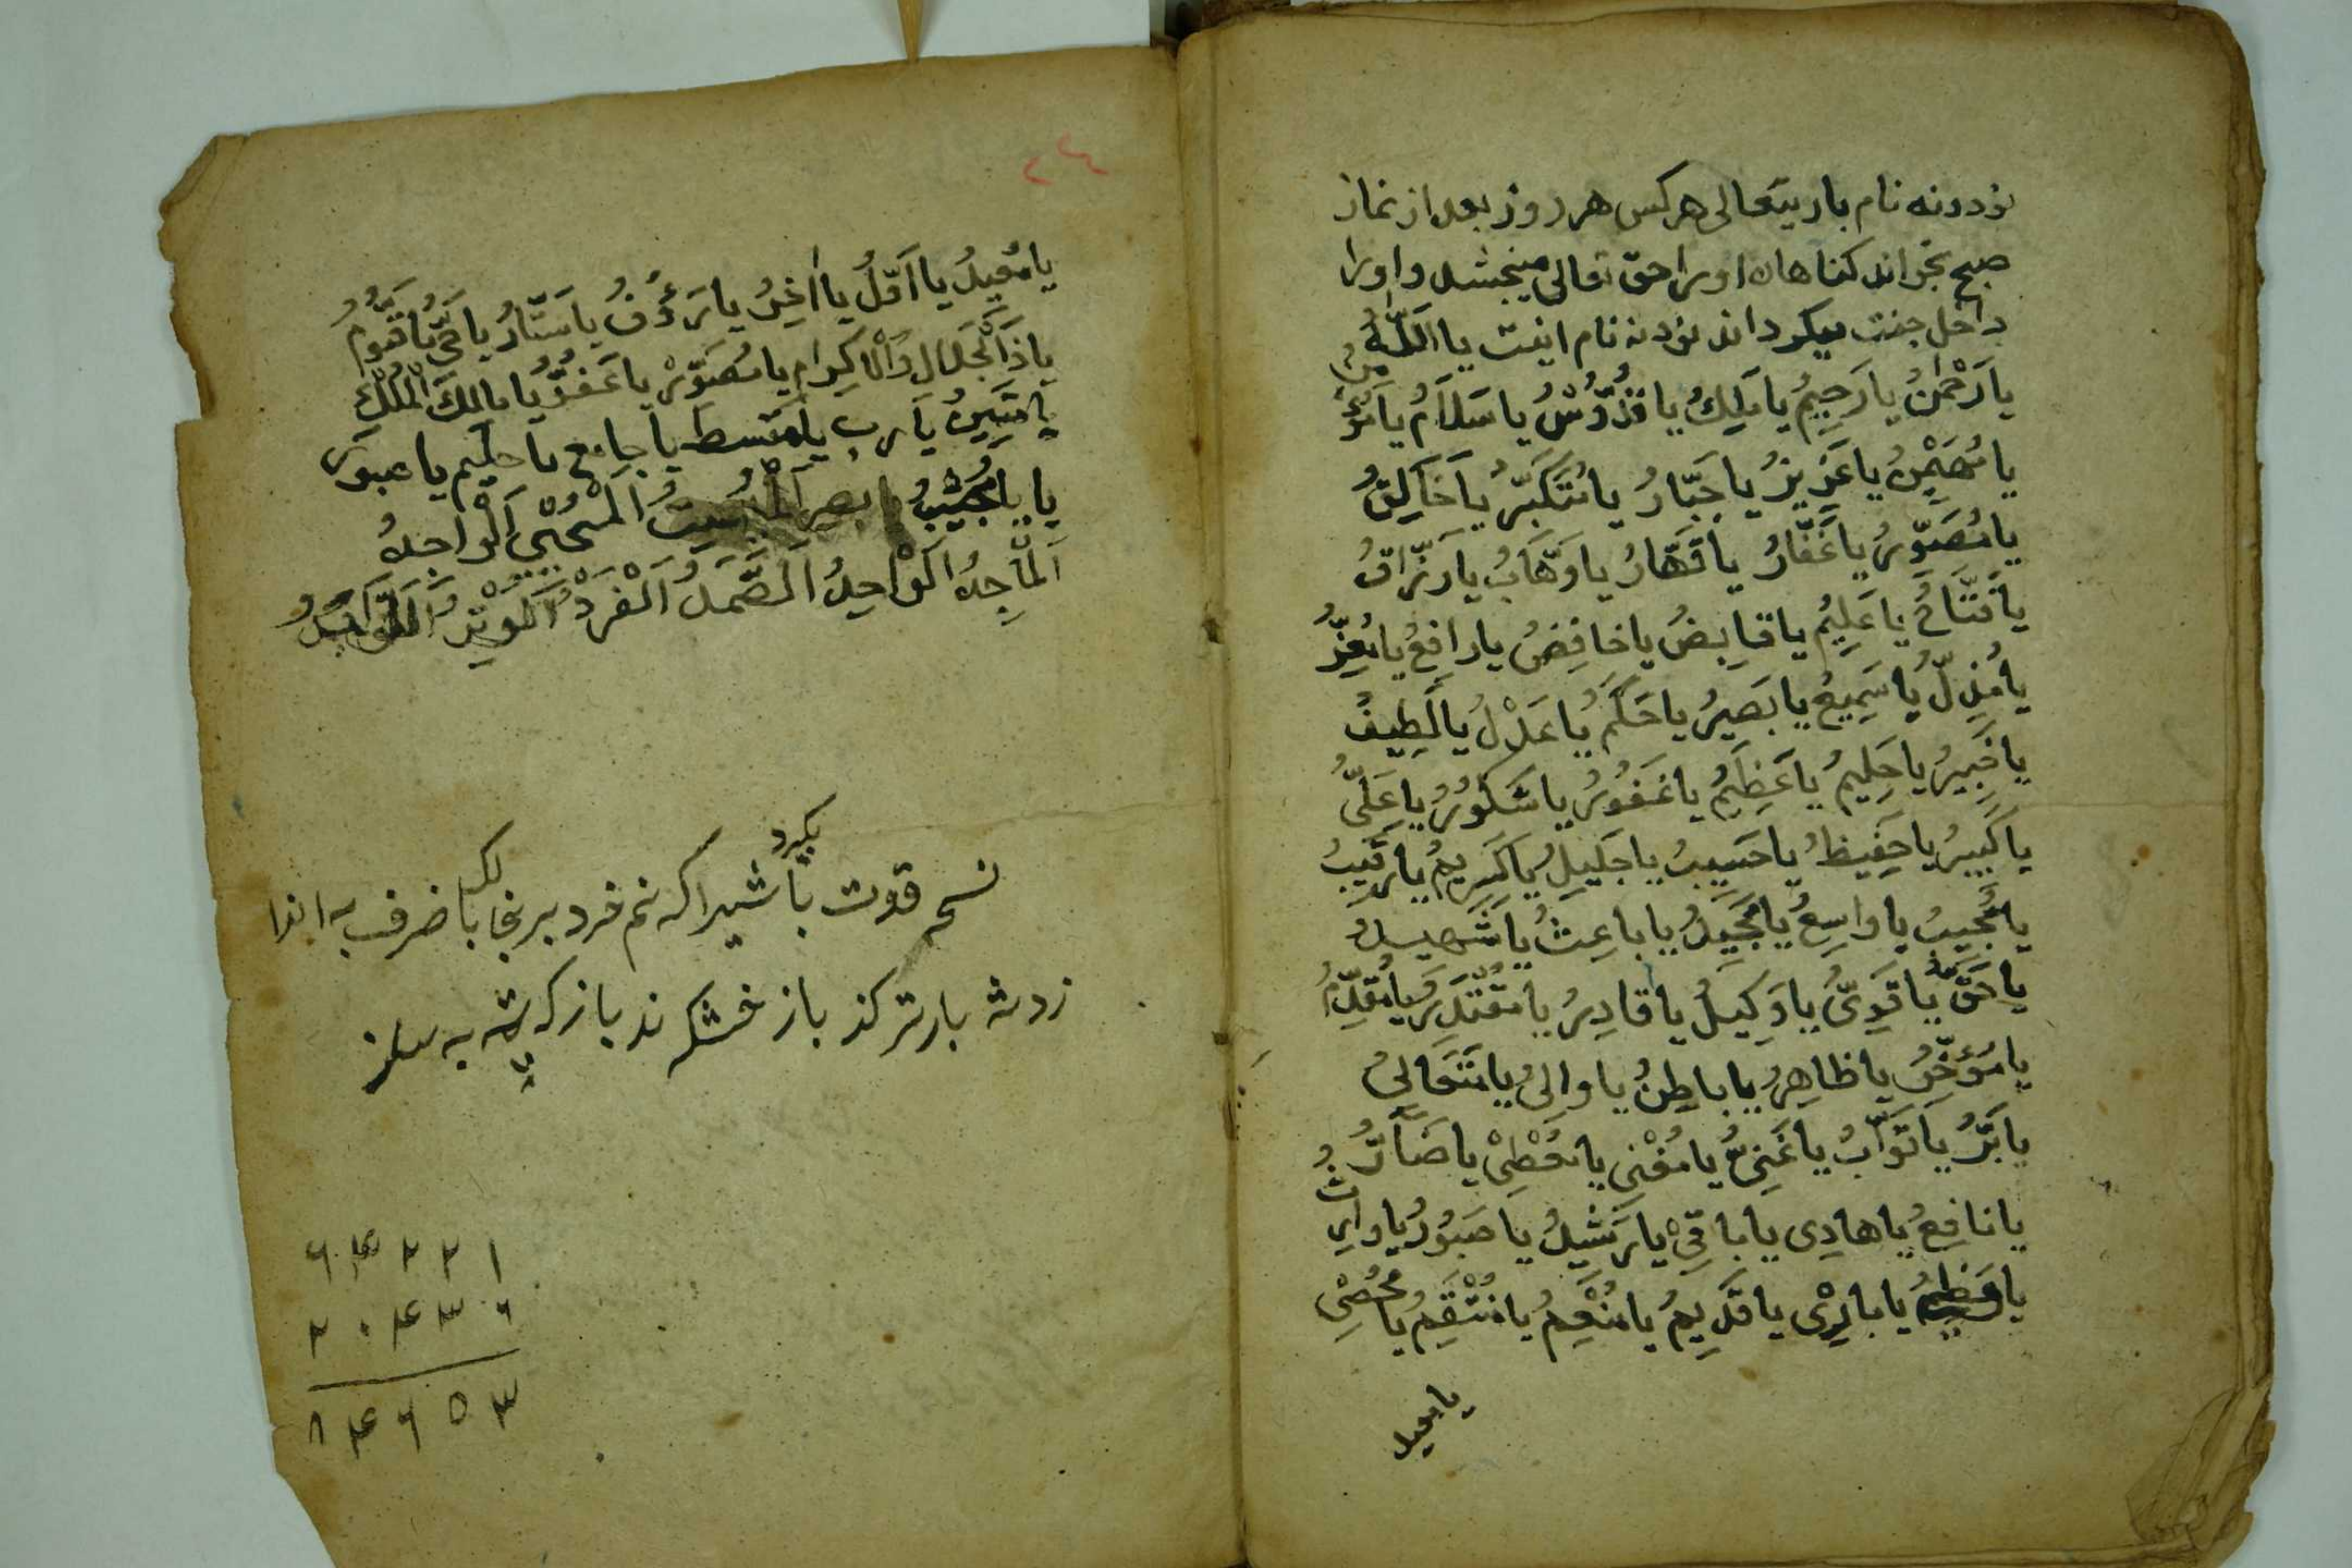 نودونه نام باریتعالی هرکس هرروز بعد از نماز
صبح بخواند کناهان اورا حق تعالی میبخشد واورا
داخل جنت میکرداند نودنه نام اینت یا اَللّٰهُ
یا رَحْمٰنُ یا رَحِیمُ یا مَلِكُ یا قُدُّوْسُ یا سَلاَمُ یا مُؤْمِنُ
یا مُهَیْمِنُ یا عَزِیزُ یا جَبَّارُ یا مُتَکَبِّرُ یا خَالِقُ
یا مُصَوِّرُ یا غَفَّارُ یا قَهَّارُ یا وَهَّابُ یا رَزَّاقُ
یا فَتَّاحُ یا عَلِیْمُ یا قابِضُ یا خافِضُ یا رافِعُ یا مُعِزُّ
یا مُذِلُّ یا سَمِیعُ یا بَصِیرُ یا حَکَمُ یا عَدْلُ یا لَطِیفُ
یا خَبِیرُ یا حَلِیمُ یا عَظِیْمُ یا غَفُوْرُ یا شَکُوْرُ یا عَلِیُّ
یا کَبِیرُ یا حَفِیظُ یا حَسِیبُ یا جَلِیلُ یا کَرِیمُ یا رَقِیبُ
یا مُجِیبُ یا واسِعُ یا مَجِیدُ یا باعِثُ یا شَهِیدُ
یا حَقُّ یا قَوِیُّ یا وَکِیلُ یا قادِرُ یا مُقْتَدِرُ یا مُقَدِّمُ
یا مُؤَخِّرُ یا ظاهِرُ یا باطِنُ یا والِیُ یا مُتَعَالِیُ
یا بَرُّ یا تَوَّابُ یا غَنِیُّ یا مُغْنِی یا مُعْطِیْ یا ضَآرُّ
یا نافِعُ یا هادِی یا باقِیْ یا رَشِیدُ یا صَبُوْرُ یا وارِثُ
یا بارِیْ یا قَدِیمُ یا مُنْعِمُ یا مُنْتَقِمُ یا مُحْصِی
یا معید
٢٤
یا مُعِیدُ یا اَوَّلُ یا اٰخِرُ یا رَؤُفُ یا سَتَّارُ یا حَیُّ یا قَیُّوْمُ
یا ذَاالْجَلالِ وَالْاِکِرامِ یا مُصَوِّرُ یا غَفُوُّ یا مالِكَ الْمُلْكِ
یا مَتِینُ یا رب یا مقسط یا جامع یا حلیم یا صبور
یا یا مُجِیْبُ اَلْمُمِیتُ اَلْمُحْیِیْ اَلْواجِدُ
اَلْمَاجِدُ اَلْوَاحِدُ اَلصَّمَدُ اَلْفَرْدُ اَلْوِتْرُ
بکیرد
نسخ قوت باشیرا که نم خرد
باز خشک باز که
۱ ۲ ۲ ۴ ۶
۲ ۰ ۴ ۳ ۲
۳ ۵ ۶ ۴ ۸